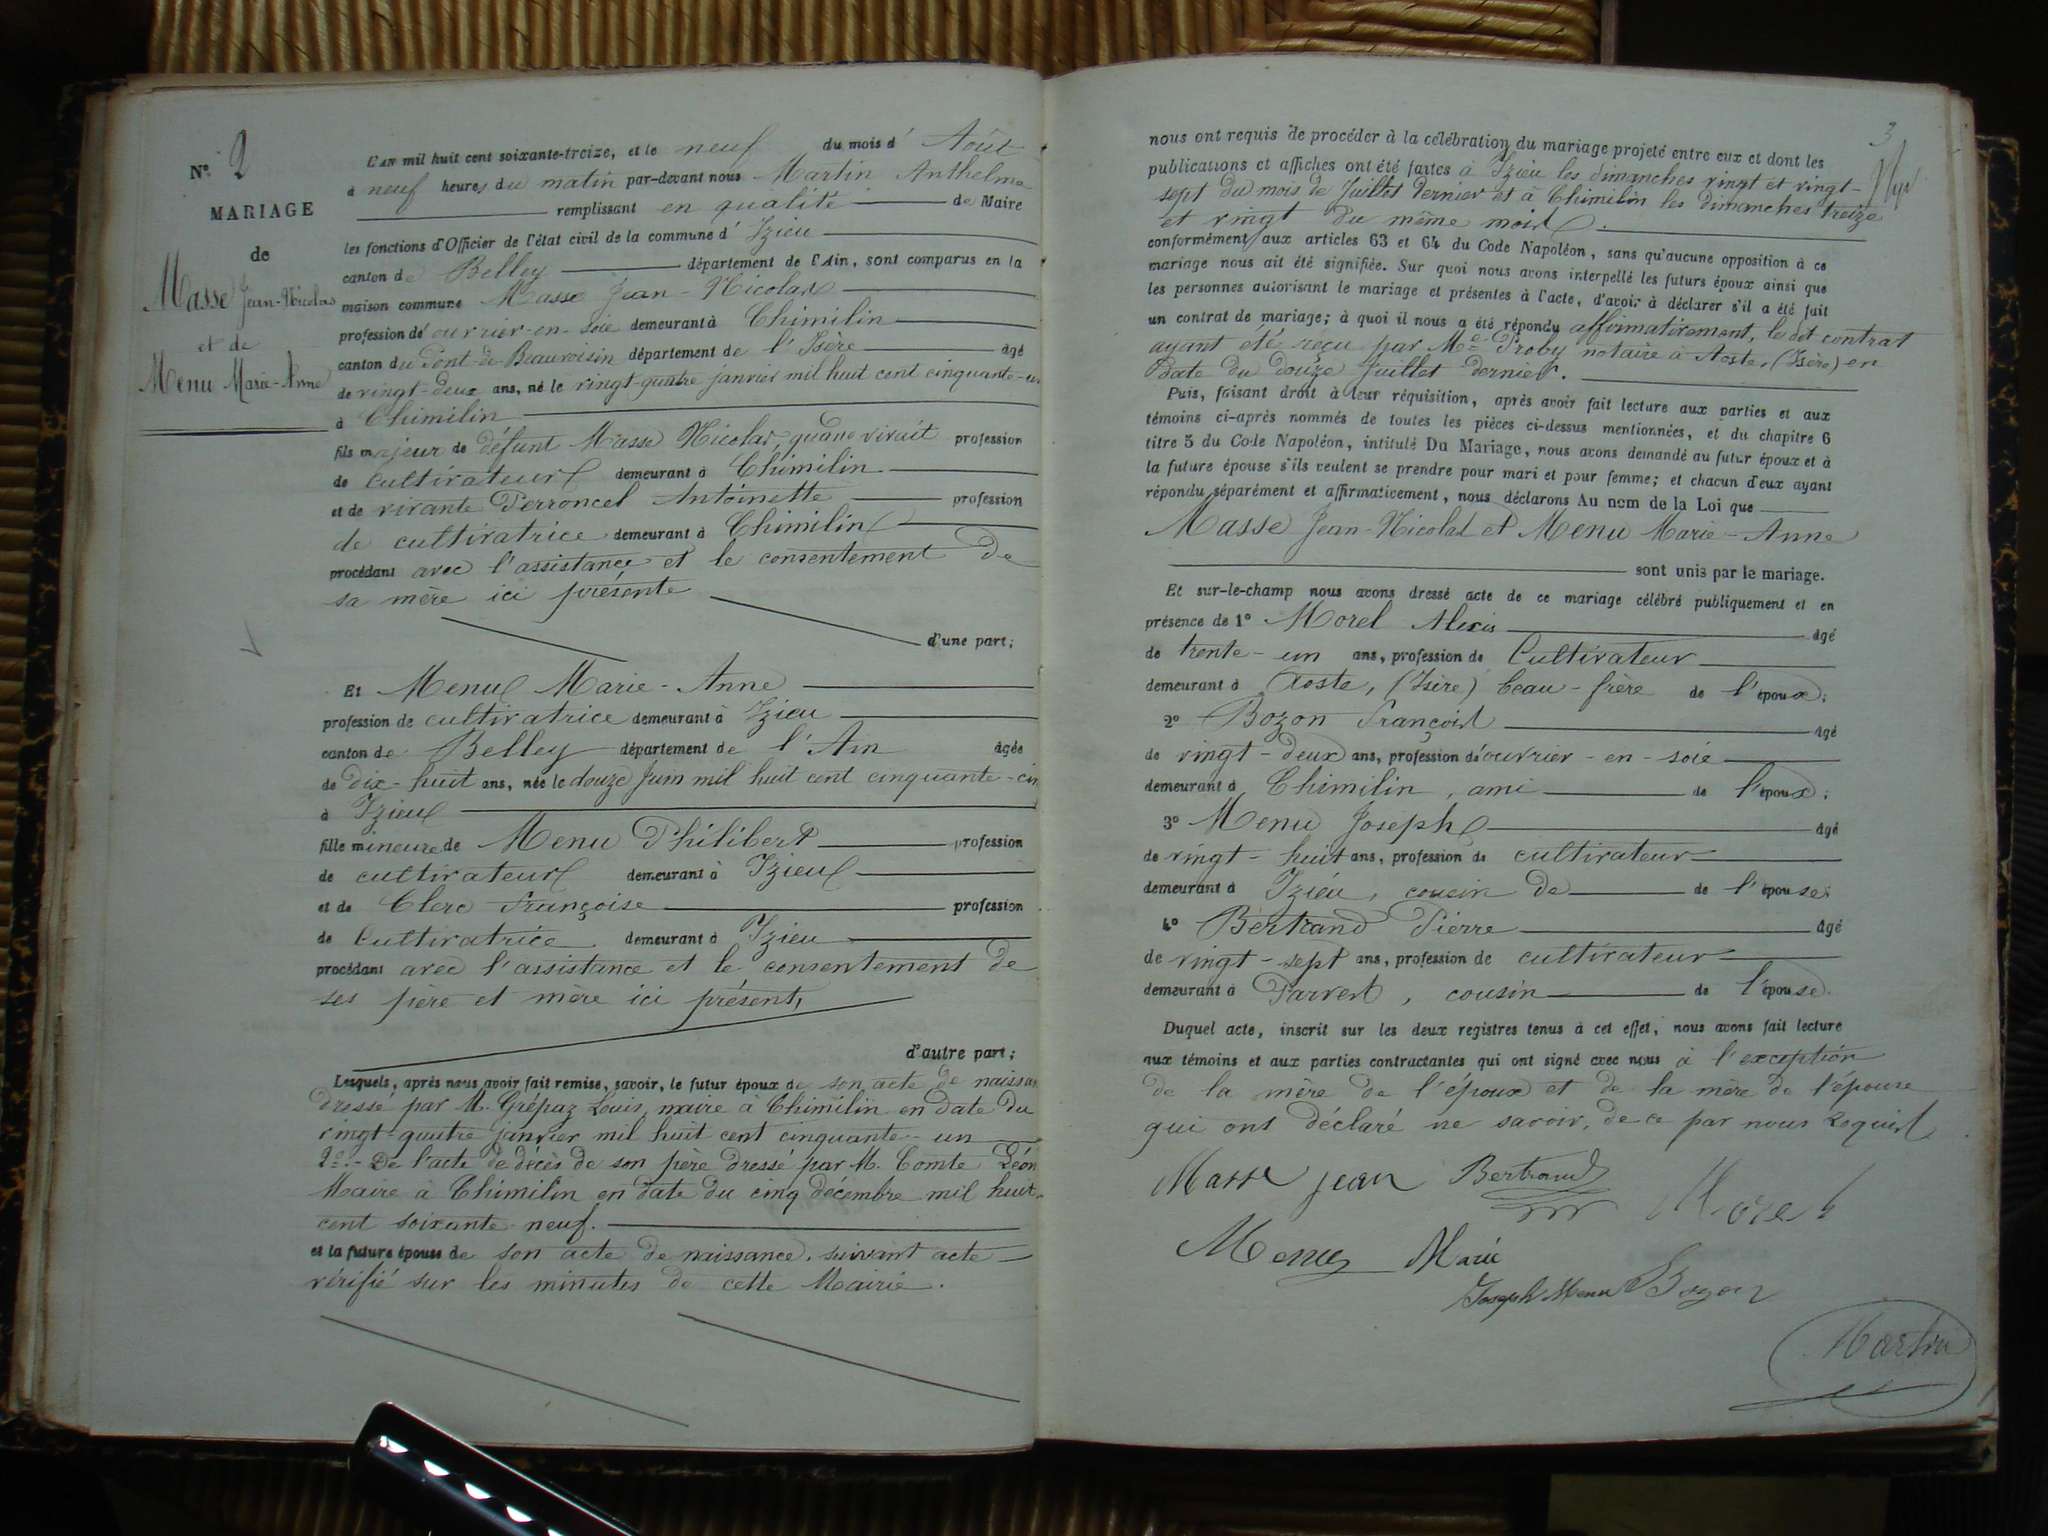 Nº 2
MARIAGE
de
Masse Jean-Nicolas
et de
Menu Marie-Anne
L'AN mil huit cent soixante-treize, et le neuf du mois d' Août
à neuf heures du matin par-devant nous Martin Anthelme
remplissant en qualité de Maire
les fonctions d'Officier de l'état civil de la commune d' Izieu
canton de Belley département de l'Ain, sont comparus en la
maison commune Masse Jean-Nicolas
profession de ouvrier-en-soie demeurant à Chimilin
canton du Pont-de-Beauvoisin département de l'Isère âgé
de vingt-deux ans, né le vingt-quatre janvier mil huit cent cinquante-un
à Chimilin
fils majeur de défunt Masse Nicolas, quand vivait profession
de cultivateur demeurant à Chimilin
et de vivante Perroncel Antoinette profession
de cultivatrice demeurant à Chimilin
procédant avec l'assistance et le consentement de
sa mère ici présente
d'une part;
Et Menu Marie-Anne
profession de cultivatrice demeurant à Izieu
canton de Belley département de l'Ain âgée
de dix-huit ans, née le douze Juin mil huit cent cinquante-cin
à Izieu
fille mineure de Menu Philibert profession
de cultivateur demeurant à Izieu
et de Clerc Françoise profession
de Cultivatrice demeurant à Izieu
procédant avec l'assistance et le consentement de
ses père et mère ici présent,
d'autre part;
Lesquels, après nous avoir fait remise, savoir, le futur époux de son acte de naissan
dressé par M. Grépaz Louis, maire à Chimilin en date du
vingt-quatre janvier mil huit cent cinquante-un
2º.- De l'acte de décès de son père dressé par M. Comte Léon
Maire à Chimilin en date du cinq décembre mil huit
cent soixante-neuf.
et la future épouse de son acte de naissance, suivant acte
vérifié sur les minutes de cette Mairie.
3
nous ont requis de procéder à la célébration du mariage projeté entre eux et dont les
publications et affiches ont été faites à Izieu les dimanches vingt et vingt-
sept du mois de Juillet dernier et à Chimilin les dimanches treize
et vingt du même mois.
conformément aux articles 63 et 64 du Code Napoléon, sans qu'aucune opposition à ce
mariage nous ait été signifiée. Sur quoi nous avons interpellé les futurs époux ainsi que
les personnes autorisant le mariage et présentes à l'acte, d'avoir à déclarer s'il a été fait
un contrat de mariage; à quoi il nous a été répondu affirmativement, le dit contrat
ayant été reçu par Me Proby notaire à Aoste, (Isère) en
date du douze Juillet dernier.
Puis, faisant droit à leur réquisition, après avoir fait lecture aux parties et aux
témoins ci-après nommés de toutes les pièces ci-dessus mentionnées, et du chapitre 6
titre 5 du Code Napoléon, intitulé Du Mariage, nous avons demandé au futur époux et à
la future épouse s'ils veulent se prendre pour mari et pour femme; et chacun d'eux ayant
répondu séparément et affirmativement, nous déclarons Au nom de la Loi que
Masse Jean-Nicolas et Menu Marie-Anne
sont unis par le mariage.
Et sur-le-champ nous avons dressé acte de ce mariage célébré publiquement et en
présence de 1º Morel Alexis âgé
de trente-un ans, profession de Cultivateur
demeurant à Aoste, (Isère) beau-frère de l'époux;
2º Bozon François âgé
de vingt-deux ans, profession de ouvrier-en-soie
demeurant à Chimilin, ami de l'époux;
3º Menu Joseph âgé
de vingt-huit ans, profession de cultivateur
demeurant à Iziéu, cousin de de l'épouse;
4º Bertrand Pierre âgé
de vingt-sept ans, profession de cultivateur
demeurant à Parves, cousin de l'épouse.
Duquel acte, inscrit sur les deux registres tenus à cet effet, nous avons fait lecture
aux témoins et aux parties contractantes qui ont signé avec nous à l'exception
de la mère de l'époux et de la mère de l'épouse
qui ont déclaré ne savoir, de ce par nous requis.
Masse jean Bertrand Morel
Menu Marie
Joseph Menu Bozon
Martin